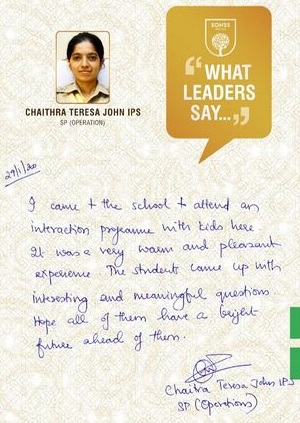 SOHSS
“WHAT
LEADERS
SAY...”
CHAITHRA TERESA JOHN IPS
SP (OPERATION)
29/1/20
I came to the school to attend an
interaction programe with kids here
It was a very warm and pleasant
experience. The students came up with
interesting and meaningful questions
Hope all of them have a bright
future ahead of them.
Chaitra Teresa John IPS
SP (Operations)